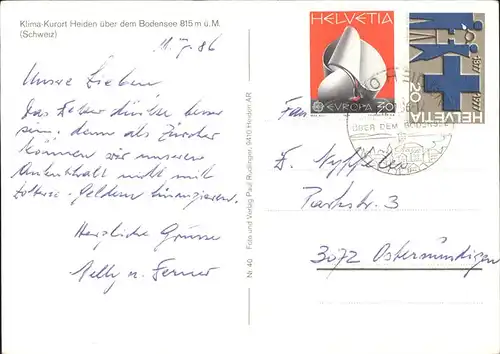 Klima-Kurort Heiden über dem Bodensee 815 m ü.M.
(Schweiz)
11.7.86
Unsre Lieben
Das Wetter dürfte besser
sein, denn als Zürcher
können wir unseren
Aufenthalt nicht mit
Lotterie-Geldern finanzieren.
Herzliche Grüsse
Nelly u. Ferner
Nr. 40 Foto und Verlag Paul Rüdlinger, 9410 Heiden AR
HELVETIA
EUROPA 30
1877-1977
20
HELVETIA
HEIDEN
ÜBER DEM BODENSEE
Fam
E. Nyffeler
Parkstr. 3
3072 Ostermundigen